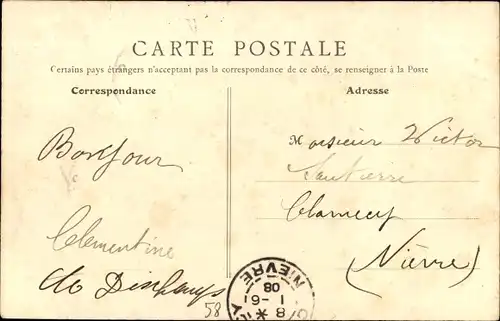 CARTE POSTALE
Certains pays étrangers n'acceptant pas la correspondance de ce côté, se renseigner à la Poste
Correspondance
Adresse
Bonjour
Clementine
58
Monsieur Victor
Clamecy
(Nièvre)
NIEVRE
8
1-6
08